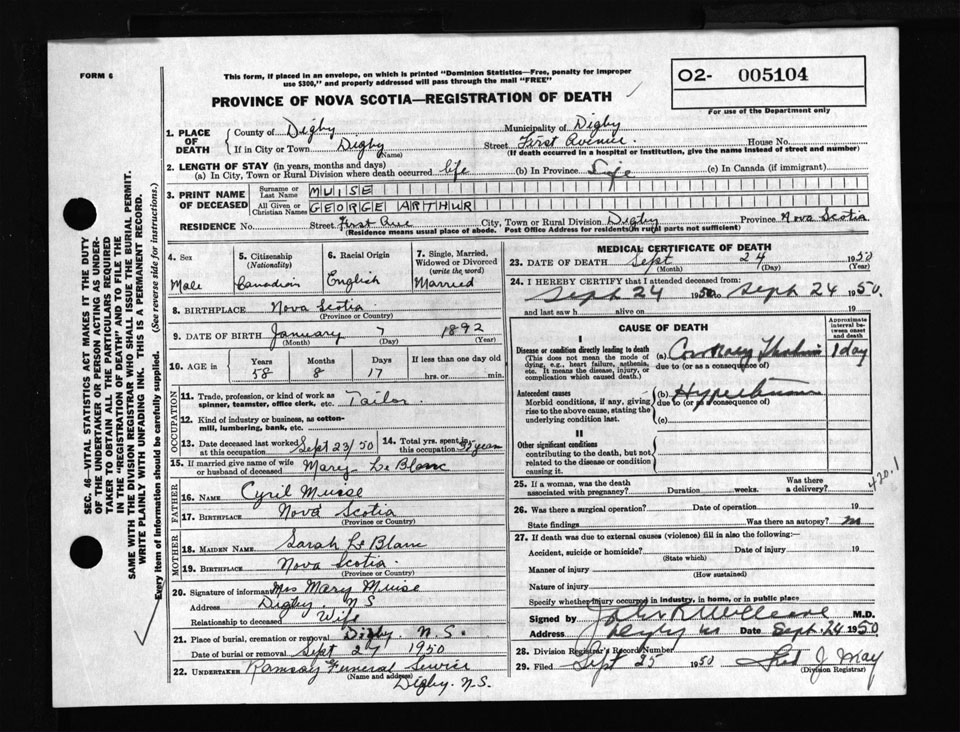 FORM 6
This form, if placed in an envelope, on which is printed "Dominion Statistics—Free, penalty for improper
use $300," and properly addressed will pass through the mail "FREE"
02- 005104
For use of the Department only
PROVINCE OF NOVA SCOTIA—REGISTRATION OF DEATH
1. PLACE OF DEATH
County of Digby Municipality of Digby
If in City or Town Digby (Name) Street First Avenue. House No.
(If death occurred in a hospital or institution, give the name instead of street and number)
2. LENGTH OF STAY (in years, months and days)
(a) In City, Town or Rural Division where death occurred life (b) In Province Life (c) In Canada (if immigrant)
3. PRINT NAME OF DECEASED
Surname or Last Name MUISE
All Given or Christian Names GEORGE ARTHUR
RESIDENCE No. Street First Ave City, Town or Rural Division Digby Province Nova Scotia
(Residence means usual place of abode. Post Office Address for residents in rural parts not sufficient)
4. Sex
Male
5. Citizenship (Nationality)
Canadian
6. Racial Origin
English
7. Single, Married, Widowed or Divorced (write the word)
Married
8. BIRTHPLACE Nova Scotia
(Province or Country)
9. DATE OF BIRTH January 7 1892
(Month) (Day) (Year)
10. AGE in
Years Months Days If less than one day old
58 8 17 hrs. or min.
OCCUPATION
11. Trade, profession, or kind of work as
spinner, teamster, office clerk, etc. Tailor
12. Kind of industry or business, as cotton-
mill, lumbering, bank, etc.
13. Date deceased last worked at this occupation Sept 23/50
14. Total yrs. spent in this occupation 35 years
15. If married give name of wife
or husband of deceased Mary Le Blanc
FATHER
16. NAME Cyril Muise
17. BIRTHPLACE Nova Scotia
(Province or Country)
MOTHER
18. MAIDEN NAME Sarah Le Blanc
19. BIRTHPLACE Nova Scotia.
(Province or Country)
20. Signature of informant Mrs Mary Muise
Address Digby N S
Relationship to deceased Wife
21. Place of burial, cremation or removal Digby. N. S.
Date of burial or removal Sept 27 1950
22. UNDERTAKER Ramsay Funeral Service
(Name and address) Digby. N.S.
MEDICAL CERTIFICATE OF DEATH
23. DATE OF DEATH Sept 24 1950
(Month) (Day) (Year)
24. I HEREBY CERTIFY that I attended deceased from
Sept 24 1950 to Sept 24 1950.
and last saw h alive on 19
CAUSE OF DEATH
Approximate interval between onset and death
I
Disease or condition directly leading to death
(This does not mean the mode of
dying, e.g., heart failure, asthenia,
etc. It means the disease, injury, or
complication which caused death.)
(a) Coronary 1 day
due to (or as a consequence of)
Antecedent causes
Morbid conditions, if any, giving
rise to the above cause, stating the
underlying condition last.
(b) Hypertension
due to (or as a consequence of)
(c)
II
Other significant conditions
contributing to the death, but not
related to the disease or condition
causing it.
420.1
25. If a woman, was the death
associated with pregnancy? Duration weeks. Was there a delivery?
26. Was there a surgical operation? Date of operation 19
State findings Was there an autopsy?
27. If death was due to external causes (violence) fill in also the following:—
Accident, suicide or homicide? (State which) Date of injury 19
Manner of injury
(How sustained)
Nature of injury
Specify whether injury occurred in industry, in home, or in public place
Signed by M.D.
Address Digby NS Date Sept. 24 1950
28. Division Registrar's Record Number
29. Filed Sept 25 1950 Fred J. May
(Division Registrar)
SEC. 46—VITAL STATISTICS ACT MAKES IT THE DUTY
OF THE UNDERTAKER OR PERSON ACTING AS UNDER-
TAKER TO OBTAIN ALL THE PARTICULARS REQUIRED
IN THE "REGISTRATION OF DEATH" AND TO FILE THE
SAME WITH THE DIVISION REGISTRAR WHO SHALL ISSUE THE BURIAL PERMIT.
WRITE PLAINLY WITH UNFADING INK. THIS IS A PERMANENT RECORD.
Every item of information should be carefully supplied. (See reverse side for instructions.)